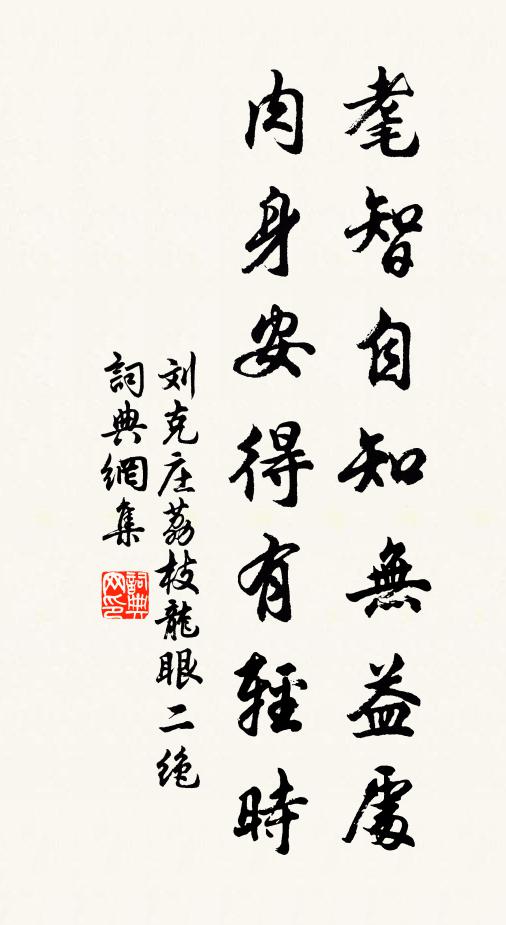 耄智自知無益處
肉身安得有輕時
刘克庄荔枝龍眼二绝
詞典網集
詞典网印